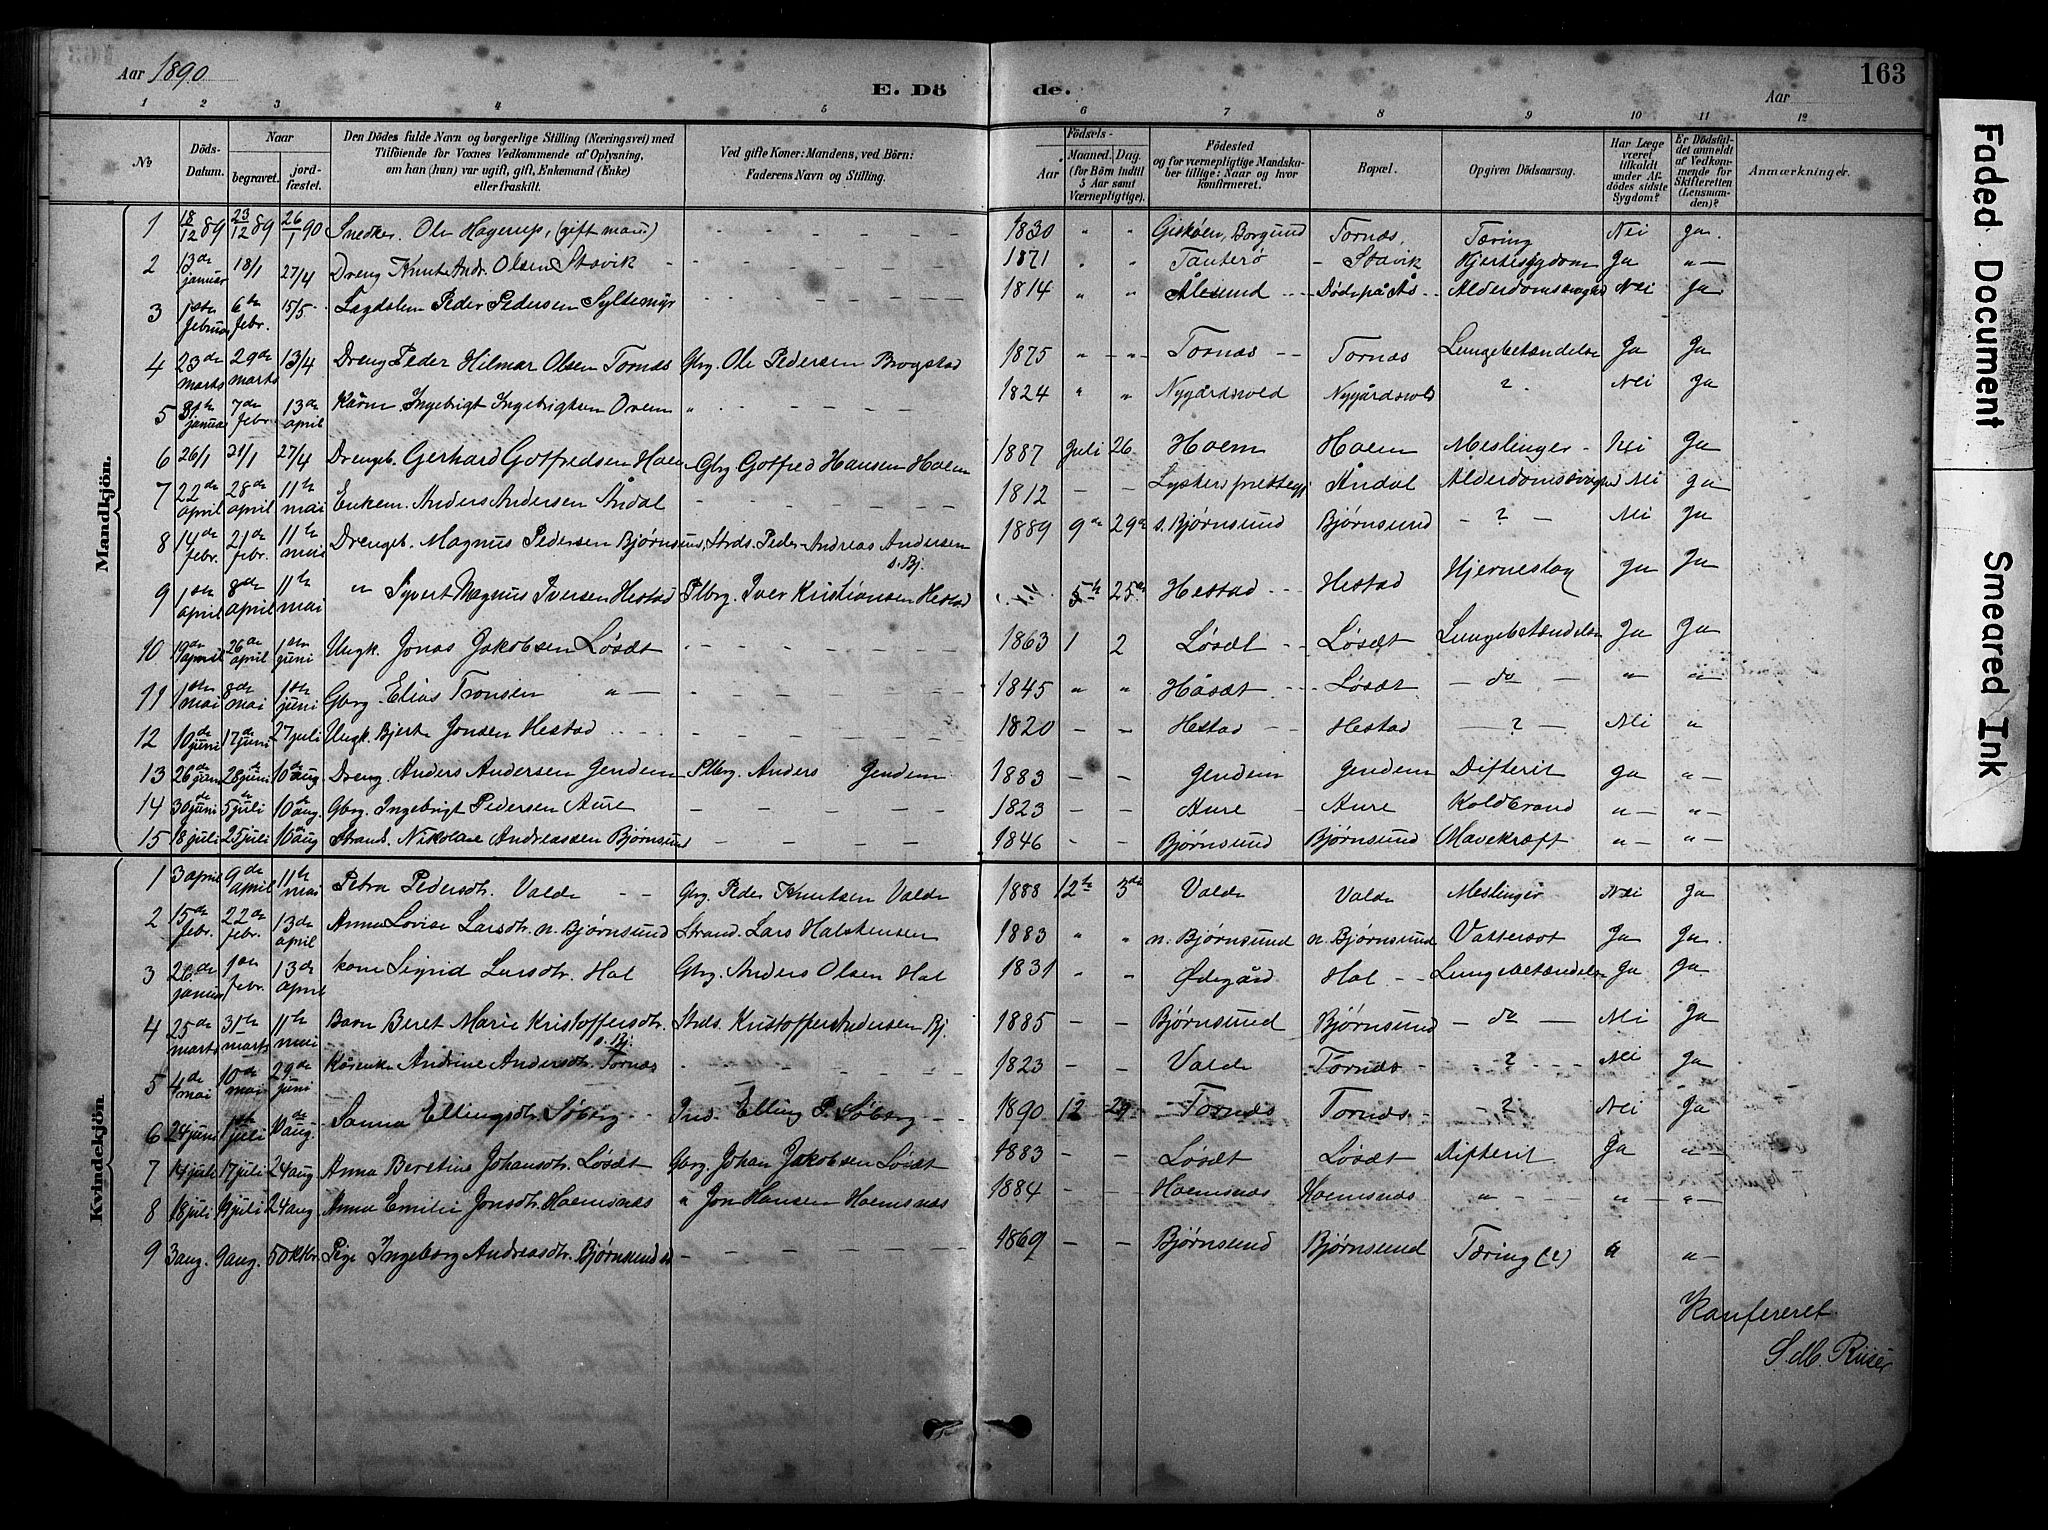 Aar 1890
E. Dö
de.
Aar
163
1 2 3 4 5 6 7 8 9 10 11 12
No
Döds-Datum.
Naar
begravet.
jord-fæstet.
Den Dödes fulde Navn og borgerlige Stilling (Næringsvei) med Tilföiende for Voxnes Vedkommende af Oplysning, om han (hun) var ugift, gift, Enkemand (Enke) eller fraskilt.
Ved gifte Koner: Mandens, ved Börn: Faderens Navn og Stilling.
Födsels-
Aar
Maaned. Dag.
(for Börn indtil 5 Aar samt Værnepligtige).
Födested og for værnepligtige Mandskaber tillige: Naar og hvor konfirmeret.
Bopæl.
Opgiven Dödsaarsag.
Har Læge været tilkaldt under Afdödes sidste Sygdom?
Er Dödsfaldet anmeldt af Vedkommende for Skifteretten (Lensmanden)?
Anmærkninger.
Mandkjön.
1 18/12 89 23/12 89 26/1 90 Snedker. Ole Hagerup, (gift mand) 1830 " " Giskøen, Borgund Tornæs, Tæring Nei Ja.
2 13de januar 18/1 27/4 Dreng Knut Andr. Olsen Stavik 1871 " " Tauterø Stavik Hjertesygdom Ja "
3 1ste februar 6te febr. 15/5 Lægdslem Peder Pedersen Syltemyr 1814 " " Ålesund Døds på Ås Alderdomssvaghed Nei Ja
4 23de marts 29de marts 13/4 Dreng Peder Hilmar Olsen Tornæs Gbrg. Ole Pedersen Brogstad 1875 " " Tornæs Tornæs Lungebetændelse Ja Ja
5 31te januar 7de febr. 13de april Kårm. Ingebrigt Ingebrigtsen Orem " 1824 " " Nygårdsvold Nygårdsvold ? Nei Ja
6 26/1 31/1 27/4 Drengeb. Gerhard Gotfredsen Hoem Gbrg Gotfred Hansen Hoem 1887 Juli 26 Hoem Hoem Meslinger Nei Ja
7 22de april 28de april 11te mai Enkem. Anders Andersen Åndal 1812 Lyster præstegj Åndal Alderdomssvaghed Nei Ja
8 14de febr. 21de febr. 11te mai Drengeb. Magnus Pedersen Bjørnsund, Strds. Peder Andreas Andersen s. Bj. 1889 9de 29de s. Bjørnsund Bjørnsund ? Nei Ja
9 1ste april 8de april 11te mai " Syvert Magnus Iversen Hestad Plbrg. Iver Kristiansen Hestad 5te 25de Hestad Hestad Hjerneslag Ja Ja
10 19de april 26de april 1ste juni Ungk. Jonas Jakobsen Løsæt 1863 1 2 Løsæt Løsæt Lungebetændelse Ja Ja
11 1ste mai 8de mai 1ste juni Gbrg. Elias Tronsen " 1845 " " Håsæt Løsæt do " "
12 10de juni 17de juni 27 juli Ungk. Bjert Jonsen Hestad 1820 Hestad Hestad ? Nei "
13 26de juni 28de juni 10de aug. Dreng. Anders Andersen Gjendem Plbrg. Anders Gjendem 1883 Gjendem Gjendem Difterit Ja "
14 30de juni 5te juli 10de aug. Gbrg. Ingebrigt Pedersen Aure 1823 Aure Aure Koldbrand " "
15 18 juli 25 juli 10de aug Strands. Nikolare Andreassen Bjørnsund 1846 Bjørnsund Bjørnsund Mavekræft " "
Kvindekjön.
1 3 april 9de april 11te mai Petra Pedersdtr. Valde Gbrg. Peder Knutsen Valde 1888 12te 3de Valde Valde Meslinger Nei Ja
2 15de febr. 22de febr. 13de april Anna Lovise Larsdtr. n. Bjørnsund Strand. Lars Halstensen 1883 " " n. Bjørnsund n. Bjørnsund Vattersot Ja Ja.
3 26de januar 1ste febr. 13de april kone Sigrid Larsdtr. Hol Gbrg. Anders Olsen Hol 1831 " Ødegård Hol Lungebetændelse Ja Ja
4 25de marts 31te marts 11te mai Barn Beret Marie Kristoffersdtr. s. Bj. Strds. Kristoffer Pedersen Bj. 1885 Bjørnsund Bjørnsund do Nei Ja
5 4de mai 10de mai 29de juni Kårenke Andrine Andersdtr. Tornæs 1823 Valde Tornæs ? Nei Ja
6 24 juni 1ste juli 10de aug. Sanna Ellingsdtr. Søberg Ind. Elling P. Søberg 1890 12 29 Tornæs Tornæs ? Nei Ja
7 14 juli 17 juli 24 aug Anna Berstine Johansdtr. Løsæt Gbrg. Johan Jakobsen Løsæt 1883 Løsæt Løsæt Difterit Ja "
8 18 juli 19 juli 24 aug. Anna Emilie Jonsdtr. Hoemsnæs " Jon Hansen Hoemsnæs 1884 Hoemsnæs Hoemsnæs " " "
9 3 aug. 9 aug. 5 oktbr. Pige Ingeborg Andreasdtr. Bjørnsund 1869 Bjørnsund Bjørnsund Tæring (?) " "
Konfereret
S. M. Riiser
Faded Document
Smeared Ink